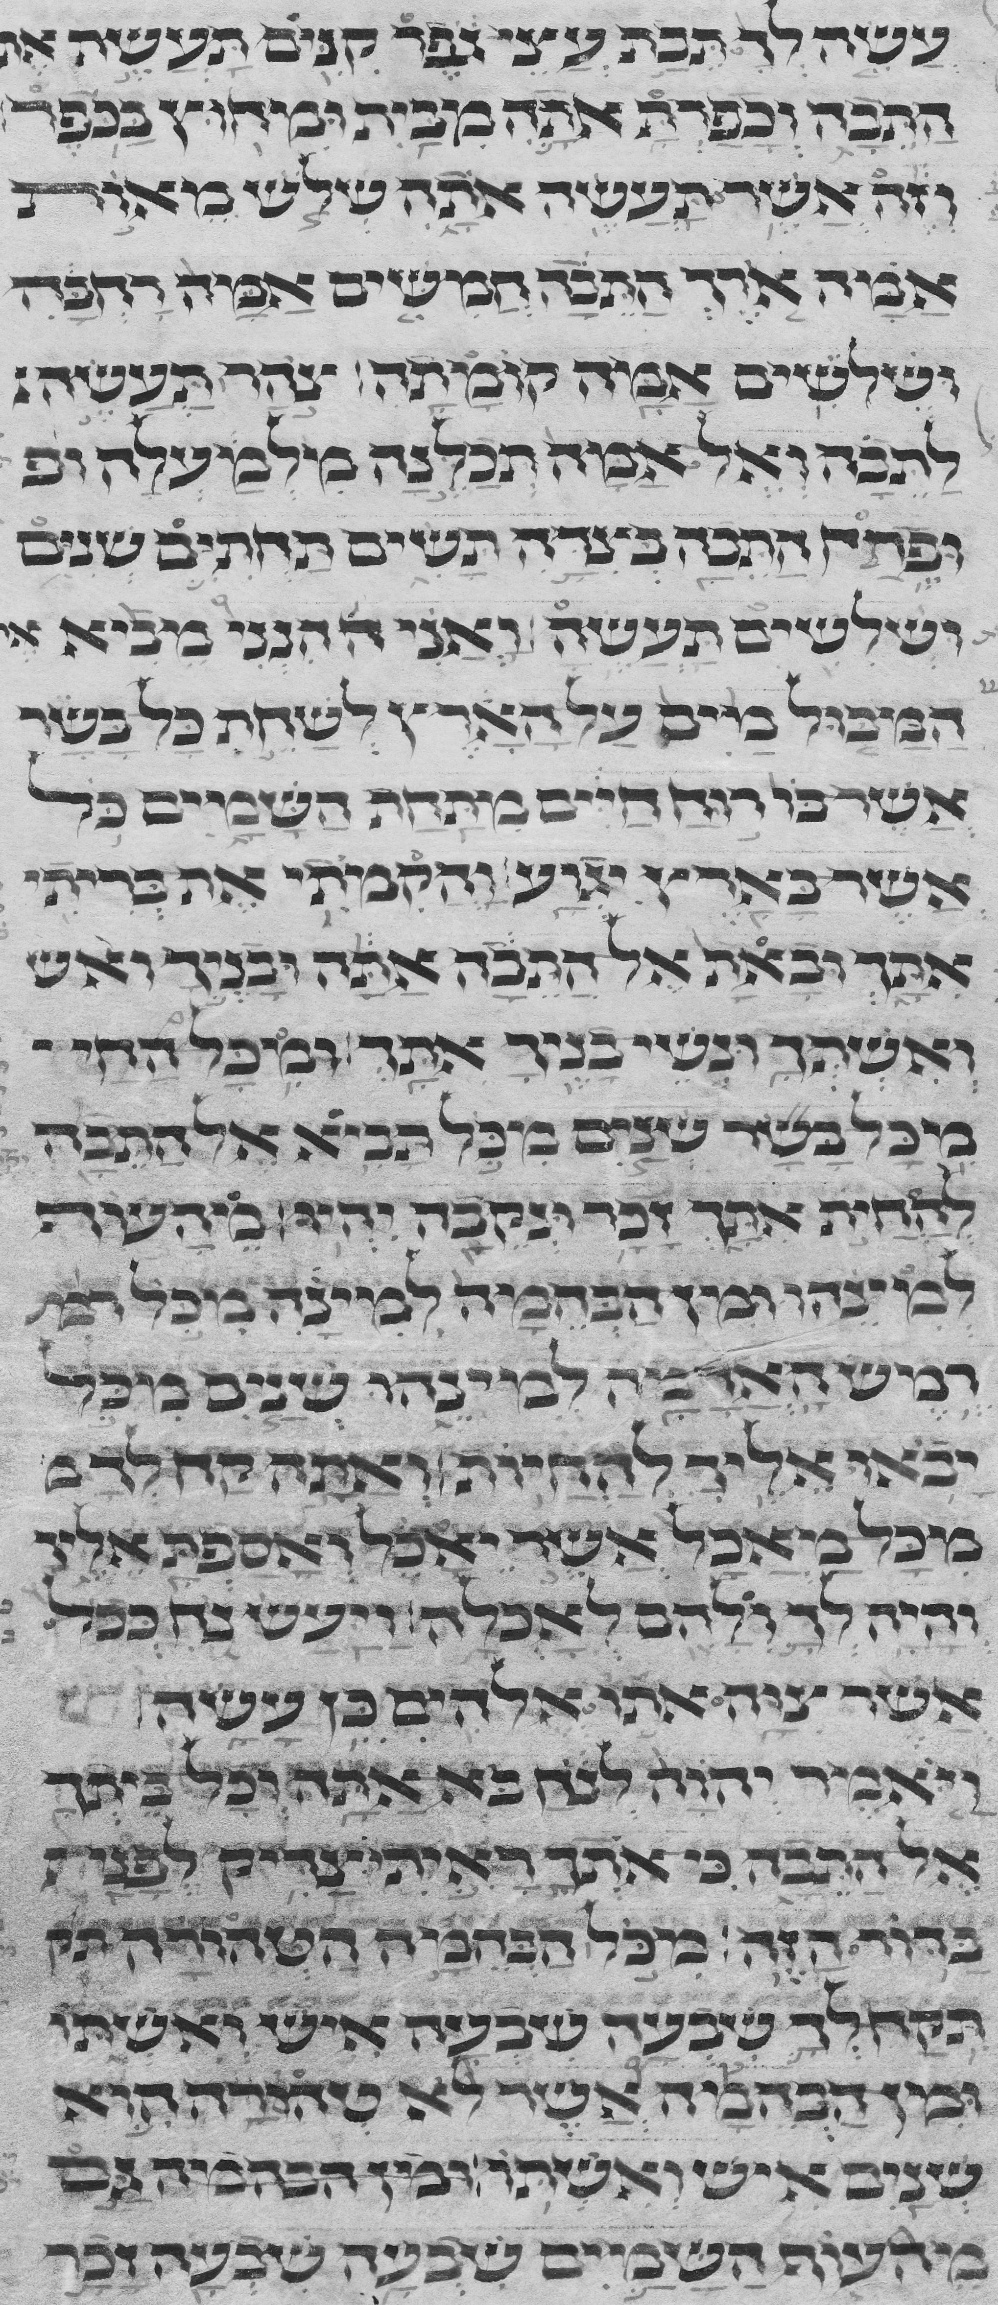 עשה לך תבת עצי גפר קנים תעשה את
התבה וכפרת אתה מבית ומחוץ בכפר
וזה אשר תעשה אתה שלש מאות
אמה ארך התבה חמשים אמה רחבה
ושלשים אמה קומתה צהר תעשה
לתבה ואל אמה תכלנה מלמעלה ופ
ופתח התבה בצדה תשים תחתים שנים
ושלשים תעשה ואני הנני מביא את
המבול מים על הארץ לשחת כל בשר
אשר בו רוח חיים מתחת השמים כל
אשר בארץ יגוע והקמתי את בריתי
אתך ובאת אל התבה אתה ובניך ואש
ואשתך ונשי בניך אתך ומכל החי
מכל בשר שנים מכל תביא אל התבה
להחית אתך זכר ונקבה יהיו מהעוף
למינהו ומן הבהמה למינה מכל רמש
רמש האדמה למינהו שנים מכל
יבאו אליך להחיות ואתה קח לך מ
מכל מאכל אשר יאכל ואספת אליך
והיה לך ולהם לאכלה ויעש נח ככל
אשר צוה אתו אלהים כן עשה
ויאמר יהוה לנח בא אתה וכל ביתך
אל התבה כי אתך ראיתי צדיק לפני
בדור הזה מכל הבהמה הטהורה תק
תקח לך שבעה שבעה איש ואשתו
ומן הבהמה אשר לא טהרה הוא
שנים איש ואשתו ומן הבהמה גם
מהעוף השמים שבעה שבעה זכר